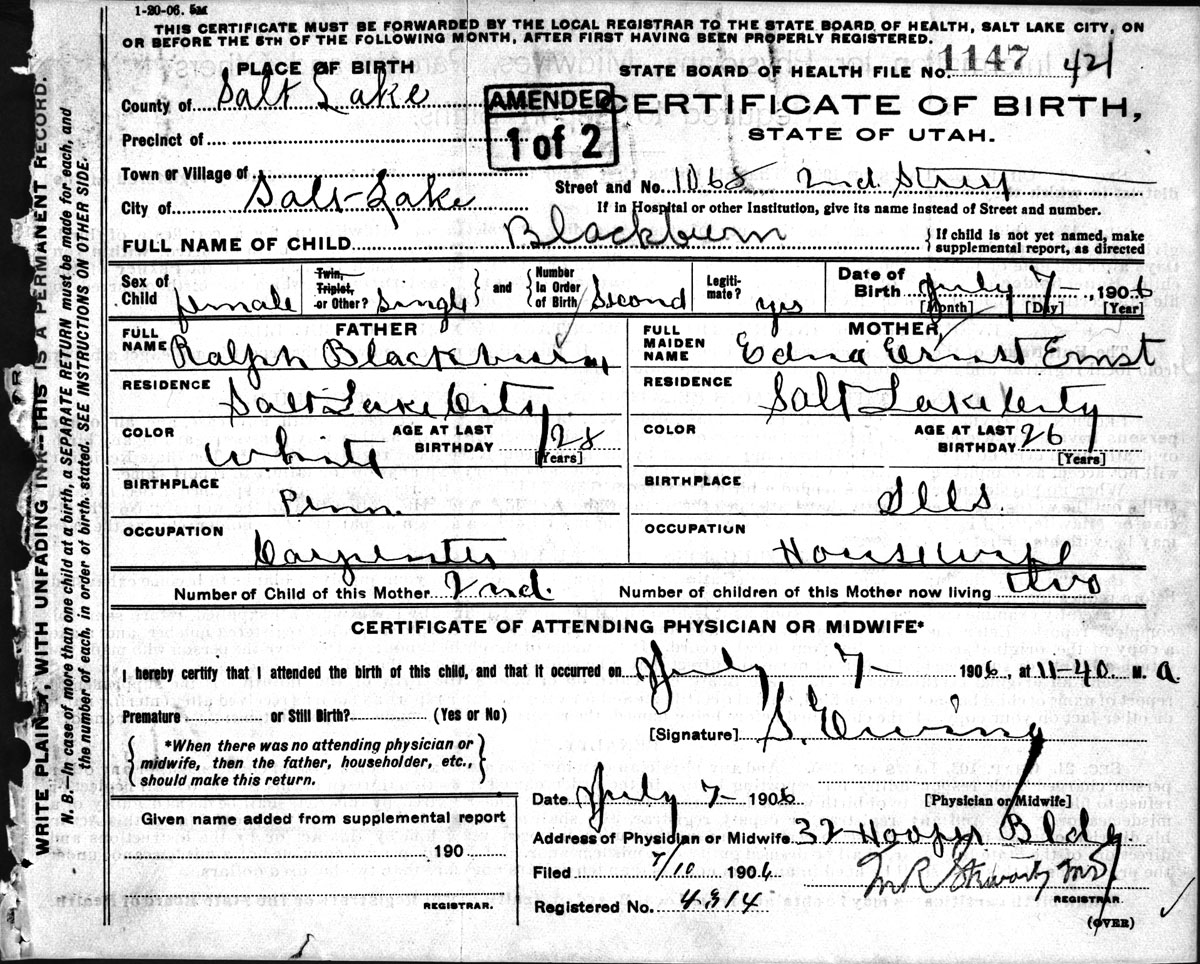 1-20-06. 5M
THIS CERTIFICATE MUST BE FORWARDED BY THE LOCAL REGISTRAR TO THE STATE BOARD OF HEALTH, SALT LAKE CITY, ON
OR BEFORE THE 5TH OF THE FOLLOWING MONTH, AFTER FIRST HAVING BEEN PROPERLY REGISTERED.
PLACE OF BIRTH
STATE BOARD OF HEALTH FILE No. 1147 421
County of Salt Lake
AMENDED
1 of 2
CERTIFICATE OF BIRTH,
STATE OF UTAH.
Precinct of
Town or Village of
Street and No. 1068 2nd Street
City of Salt Lake
If in Hospital or other Institution, give its name instead of Street and number.
FULL NAME OF CHILD Blackburn
If child is not yet named, make
supplemental report, as directed
Sex of Child female
Twin, Triplet, or Other? single
and Number in Order of Birth second
Legiti-mate? yes
Date of Birth July 7 - , 1906
[Month] [Day] [Year]
FATHER
FULL NAME Ralph Blackburn
MOTHER
FULL MAIDEN NAME Edna Ernst Ernst
RESIDENCE Salt Lake City
RESIDENCE Salt Lake City
COLOR White
AGE AT LAST BIRTHDAY 28
[Years]
COLOR
AGE AT LAST BIRTHDAY 26
[Years]
BIRTHPLACE Penn.
BIRTHPLACE Ills.
OCCUPATION Carpenter
OCCUPATION Housewife
Number of Child of this Mother 2nd.
Number of children of this Mother now living two
CERTIFICATE OF ATTENDING PHYSICIAN OR MIDWIFE*
I hereby certify that I attended the birth of this child, and that it occurred on July 7 - 1906, at 11-40 M. a
Premature or Still Birth? (Yes or No)
[Signature] S. Ewing
*When there was no attending physician or
midwife, then the father, householder, etc.,
should make this return.
Date July 7 - 1906
[Physician or Midwife]
Given name added from supplemental report
190
REGISTRAR.
Address of Physician or Midwife 32 Hooper Bldg
Filed 7/10 1906
M R Stewart MD
REGISTRAR.
Registered No. 4314
(OVER)
WRITE PLAINLY, WITH UNFADING INK—THIS IS A PERMANENT RECORD.
N. B.—In case of more than one child at a birth, a SEPARATE RETURN must be made for each, and
the number of each, in order of birth, stated. SEE INSTRUCTIONS ON OTHER SIDE.